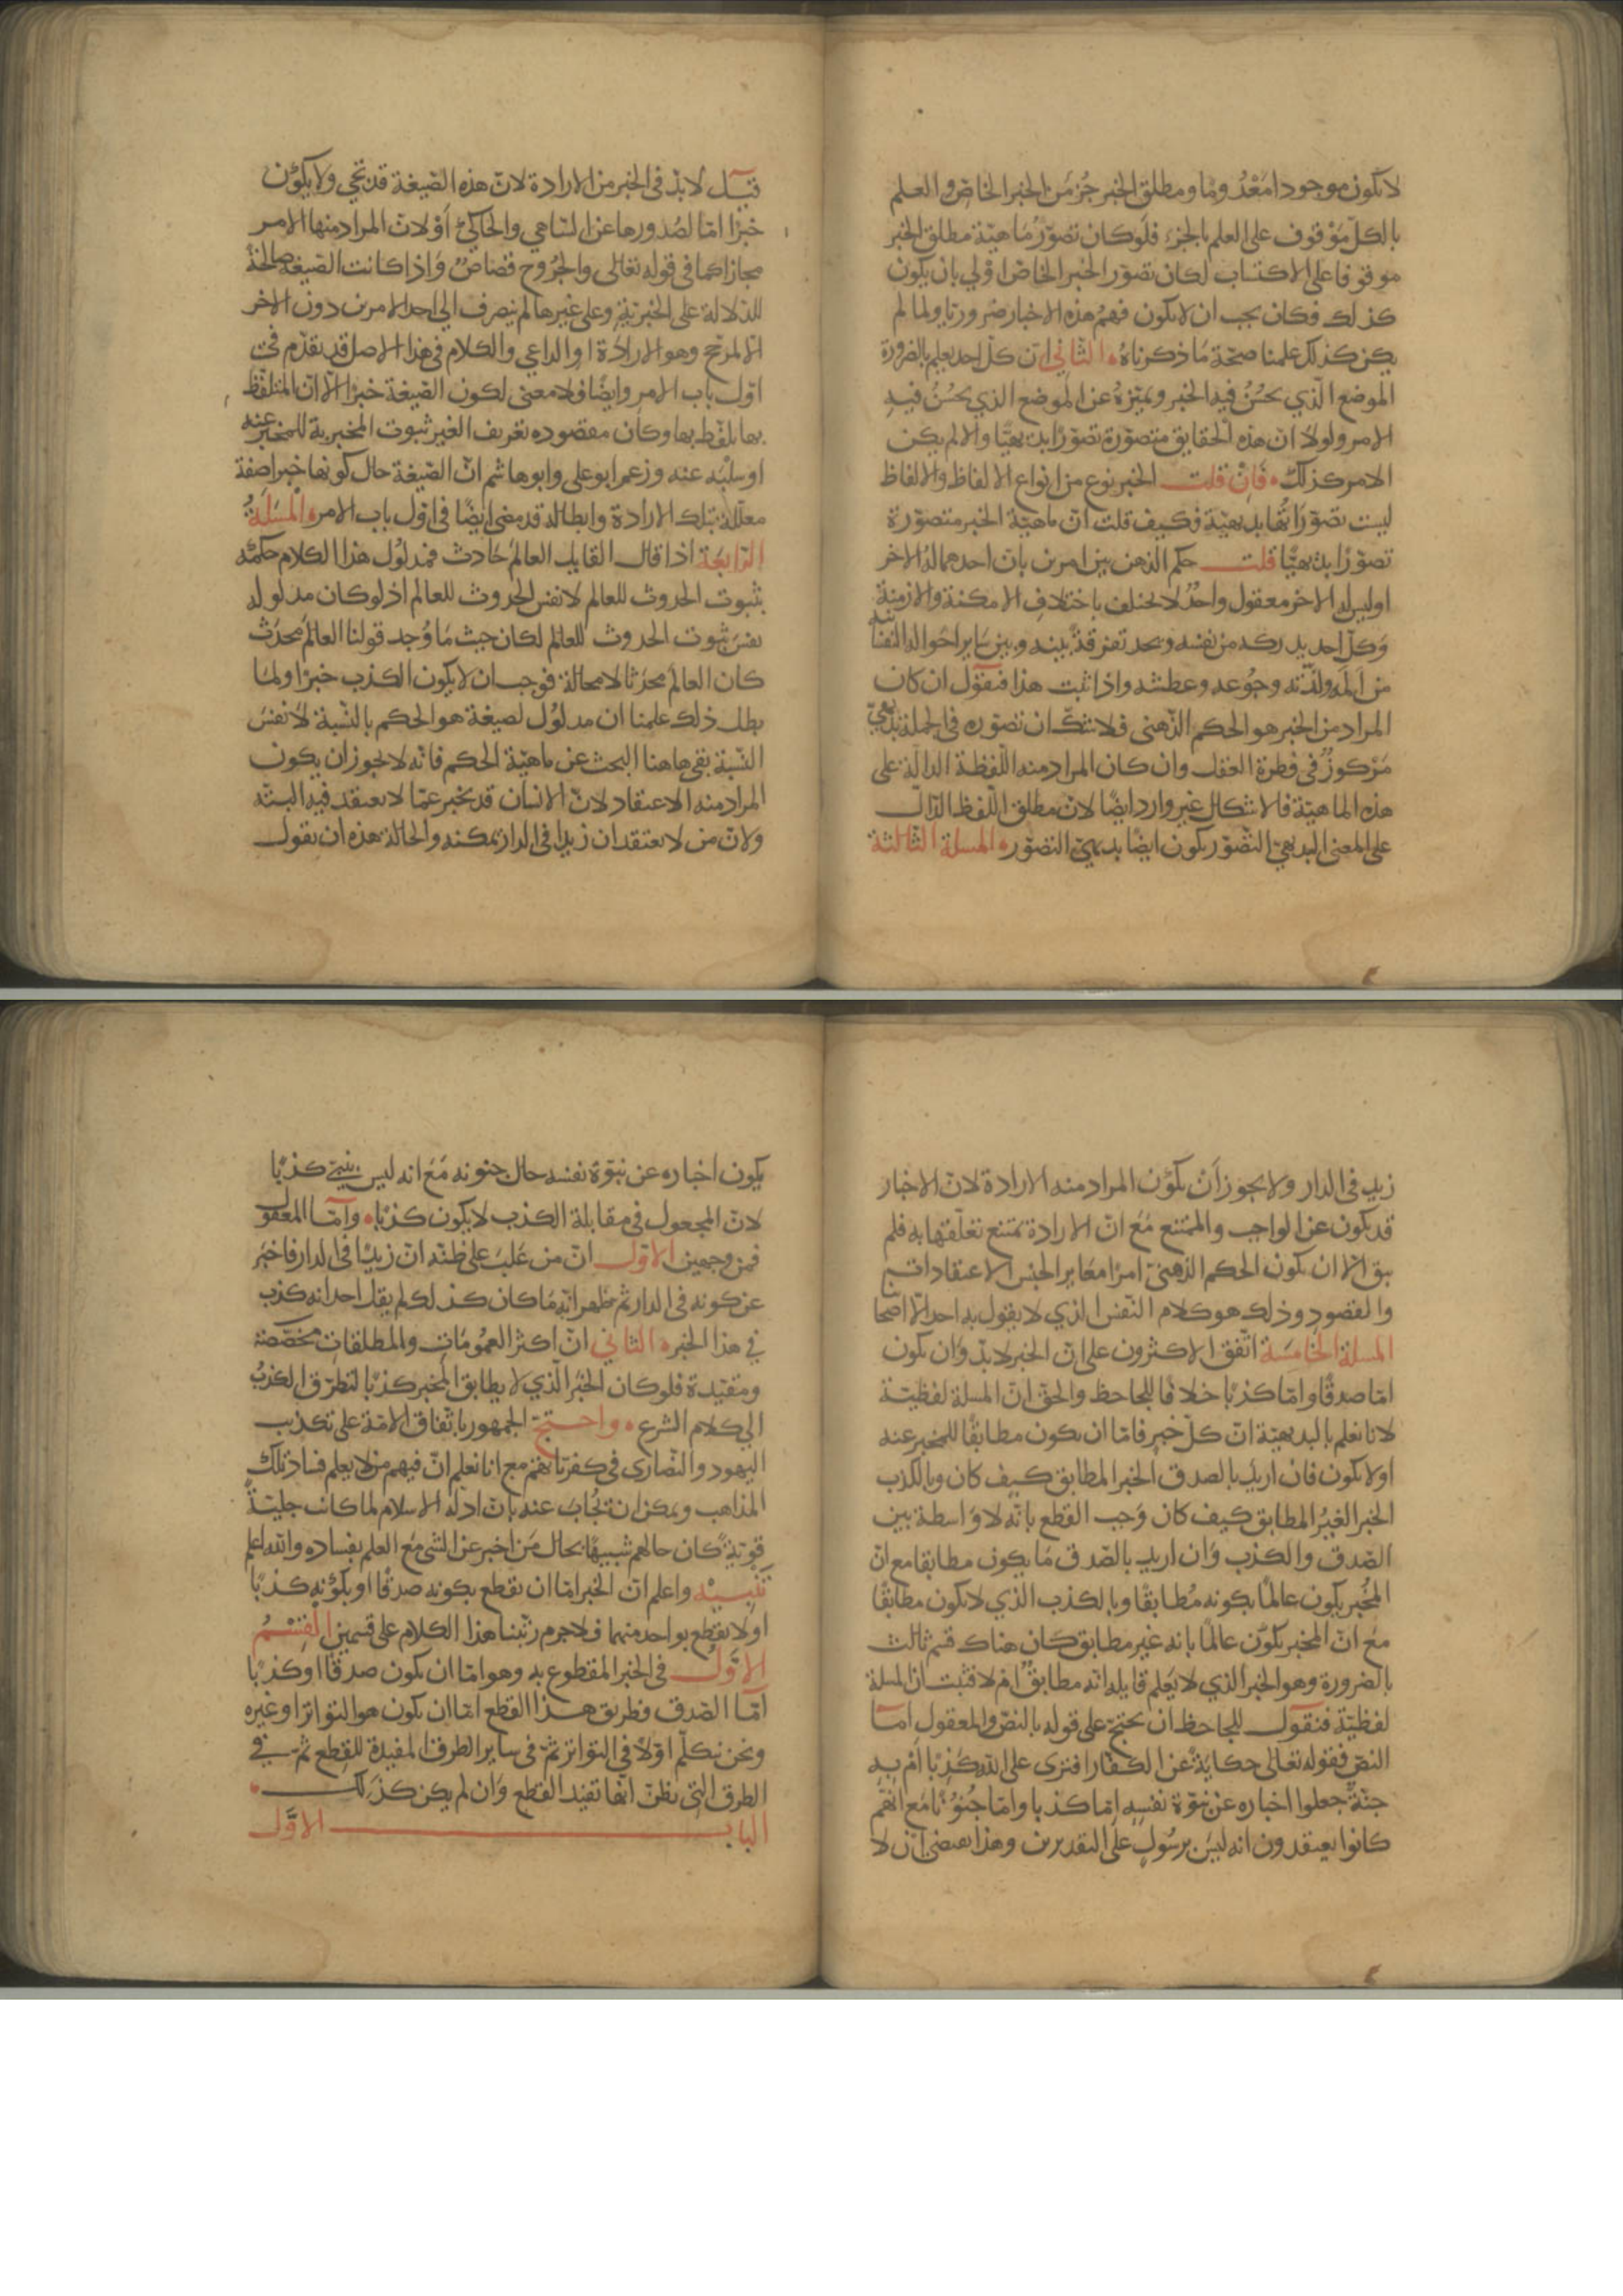 لا يكون موجودا مَعْدُوما ومطلق الخبر جُزء من الخبر الخاص والعلم
بالكلّ مَوْقوف على العلم بالجزء فلَو كان تصوّرُ مَاهيّة مطلق الخبر
موقوفا على الاكتساب لكان تصوّر الخبر الخاصّ اوْلي بان يكون
كذلك فكان يجب ان لا يكون فهمُ هذه الاخبار ضروريّا ولما لم
يكن كذلك علمنا صحّة مَا ذكرناهُ الثّاني انّ كلّ احد يعلم بالضرورة
الموضع الّذي يحسُنُ فيه الخبر ويميّزهُ عن الموضع الذي يحسُنُ فيهِ
الامر ولولا انّ هذه الحقايق متصوّرة تصوّرًا بديهيًّا والا لم يكن
الامر كذلك فَاِنْ قلت الخبر نوع من انواع الالفاظ والالفاظ
ليست تصوّراتُها بديهيّة فكيف قلت انّ ماهيّة الخبر متصوّرة
تصوّرًا بديهيًّا قلت حكم الذهن بين امرين بانّ احدهما لهُ الاخر
اوليس له الاخر معقول واحدٌ لا يختلف باختلافِ الامكنة والازمنة
وَكلّ احد يدركه من نفسه ويجد تفرقةً بينه وبين سَاير احْواله النفسانيّه
من اَلمه ولذّته وجُوعه وعطشه واذا ثبت هذا فنقول ان كان
المراد من الخبر هو الحكم الذّهنى فلا شكّ ان تصوّره في الجملة بديهيّ
مَرْكوزٌ في فطرة العقل وان كان المراد منه اللّفظة الدالّة على
هذه الماهيّة فالاشكال غير وارد ايضًا لانّ مطلق اللّفظ الدّالّ
على المعنى البديهيّ التصّوّر يكون ايضًا بديهيّ التصوّر المسلة الثّالثة
قيل لا بدّ في الخبر من الارادة لانّ هذه الصّيغة قد تجي وَلا يكوُن
خبرًا امّا لصُدورها عن السّاهي والحاكيْ اَوْ لانّ المراد منها الامر
مجازا كما في قوله تعالى والجرُوح قصَاصٌ وَاذا كانت الصّيغه صالحةً
للدّلالة على الخبريّةِ وعلى غيرها لم ينصرف الي احد الامرين دون الاخر
الّا لمرجّح وهو الارادَة او الداعي والكلام في هذا الاصل قد تقدّم في
اوّل باب الامر وايضًا فلا معنى لكون الصّيغة خبرًا الّا انّ المتلفّظ
بها تلفّظ بها وكان مقصوده تعريف الغير ثبوت المخبر به للمخبر عنه
اوسلْبَه عنه وزعم ابوعلى وابوهاشم انّ الصّيغة حال كونها خبرا صفة
معلّلة بتلك الارادة وابطاله قد مضى ايضًا في اوّل باب الامر المسَلَة
الرّابعَة اذا قال القايل العالمُ حَادث فمدلوُل هذا الكلام حكمُه
بثبوت الحدوث للعالم لا نفس الحدوث للعالم اذ لو كان مدلوله
نفسَ ثبوت الحدوث للعالم لكان حيث مَا وُجد قولنا العالمُ محدَث
كان العالَم محدَثا لا محالة فوجب ان لا يكون الكذب خبرًا ولمّا
بطل ذلك علمنا ان مدلوُل لصيغة هو الحكم بالنّسبة لا نفسَ
النّسبة بقى هاهنا البحث عن ماهيّة الحكم فانّه لا يجوز ان يكون
المراد منه الاعتقاد لانّ الانسان قد يخبر عمّا لا يعتقد فيه البتّه
ولانّ من لا يعتقد ان زيدا في الدار يمكنه والحالة هذه ان يقول
زيد في الدار ولا يجوز اَنْ يكُون المراد منه الارادة لانّ الاخبار
قد يكون عن الواجب والممتنع مَعَ انّ الارادة يمتنع تعلّقها به فلم
يبق الّا ان يكون الحكم الذّهنيّ امرًا مغاير الجنس الاعتقادات
والقصود وذلك هو كلام النّفس الذي لا يقول به احد الّا اصحابنا
المسلة الخَامسَة اتّفق الاكثرون على انّ الخبر لا بدّ وَان يكون
امّا صدقًا وامّا كذبًا خلافًا للجاحظ والحقّ انّ المسلة لفظيّة
لانا نعلم بالبديهيّة انّ كلّ خبر فامّا ان يكون مطابقًا للمخبر عنه
اولا يكون فان اريد بالصدق الخبر المطابق كيف كان وبالكذب
الخبر الغيُر المطابق كيف كان وَجب القطع بانّه لا وَاسطة بين
الصّدق والكذب وَان اريد بالصّدق مَا يكون مطابقا مع انّ
المخُبر يكون عالمًا بكونه مُطابقًا وبالكذب الذي لا يكون مطابقًا
معَ انّ المخبر يكوُن عالمًا بانه غير مطابق كَان هناك قسم ثالث
بالضرورة وهو الخبر الذي لا يَعلم قايله انّه مطابقٌ ام لا فثبت انّ المسلة
لفظيّة فنقول للجاحظ ان يحتجّ على قوله بالنصّ والمعقول امّا
النصّ فقوله تعالى حكايَةً عن الكفّار افترى على اللّه كَذِبًا اَمْ بهِ
جنّةٌ جعلوا اخباره عن نبّوة نفسِهِ امّا كذبا وامّا جُنوُنًا مَع انّهم
كانوا يعتقدون انه ليسَ برسُولٍ على التقديرين وهذا يقتضي اَنْ لا
يكون اخباره عن نبوّة نفسه حال جنونه مَعَ انه ليس بنبيّ كذبًا
لانّ المجعول في مقابلة الكذب لا يكون كذبًا وامّا المعقول
فمن وجهين الاوّل انّ من غَلبَ على ظنّه انّ زيدًا في الدار فاخبَر
عن كونه في الدار ثم ظهر انّه مَا كان كذلك لم يقل احد انه كذب
في هذا الخبر الثاني انّ اكثر العمُومَاتِ والمطلقاتِ مخصّصة
ومقيّدة فلو كان الخبَر الّذي لا يطابق المخبر كذبًا لتطرّق الكذبُ
الي كلام الشرع واحتجّ الجمهور باتّفاق الامّة على تكذيب
اليهود والنّصارى في كفريّاتهمْ مع انا نعلم انّ فيهم من لا يعلم فسَاد تلك
المذاهب ويمكن ان يُجابَ عنه بانّ ادلّة الاسلام لما كانت جليّةً
قويّةً كان حالهم شبيهًا بحال مَن اخبر عن الشي مَعَ العلم بفساده والله اعلم
تنْبيْه واعلم انّ الخبر امّا ان يقطع بكونه صدقًا او بكَوْنهِ كذبًا
اولا يقطع بواحد منهما فلا جرم رتّبنا هذا الكلام على قسمين القسْمُ
الاوَّل في الخبر المقطوع به وهو امّا ان يكون صدقًا او كذبًا
امّا الصّدق فطريق هذا القطع امّا ان يكون هو التواتر او غيره
ونحن نتكلّم اوّلاً في التواتر ثمّ في ساير الطرق المفيدة للقطع ثم في
الطرق التي يظنّ انّها تفيد القطع وَان لم يكن كذَلك
البابُ الاوَّل